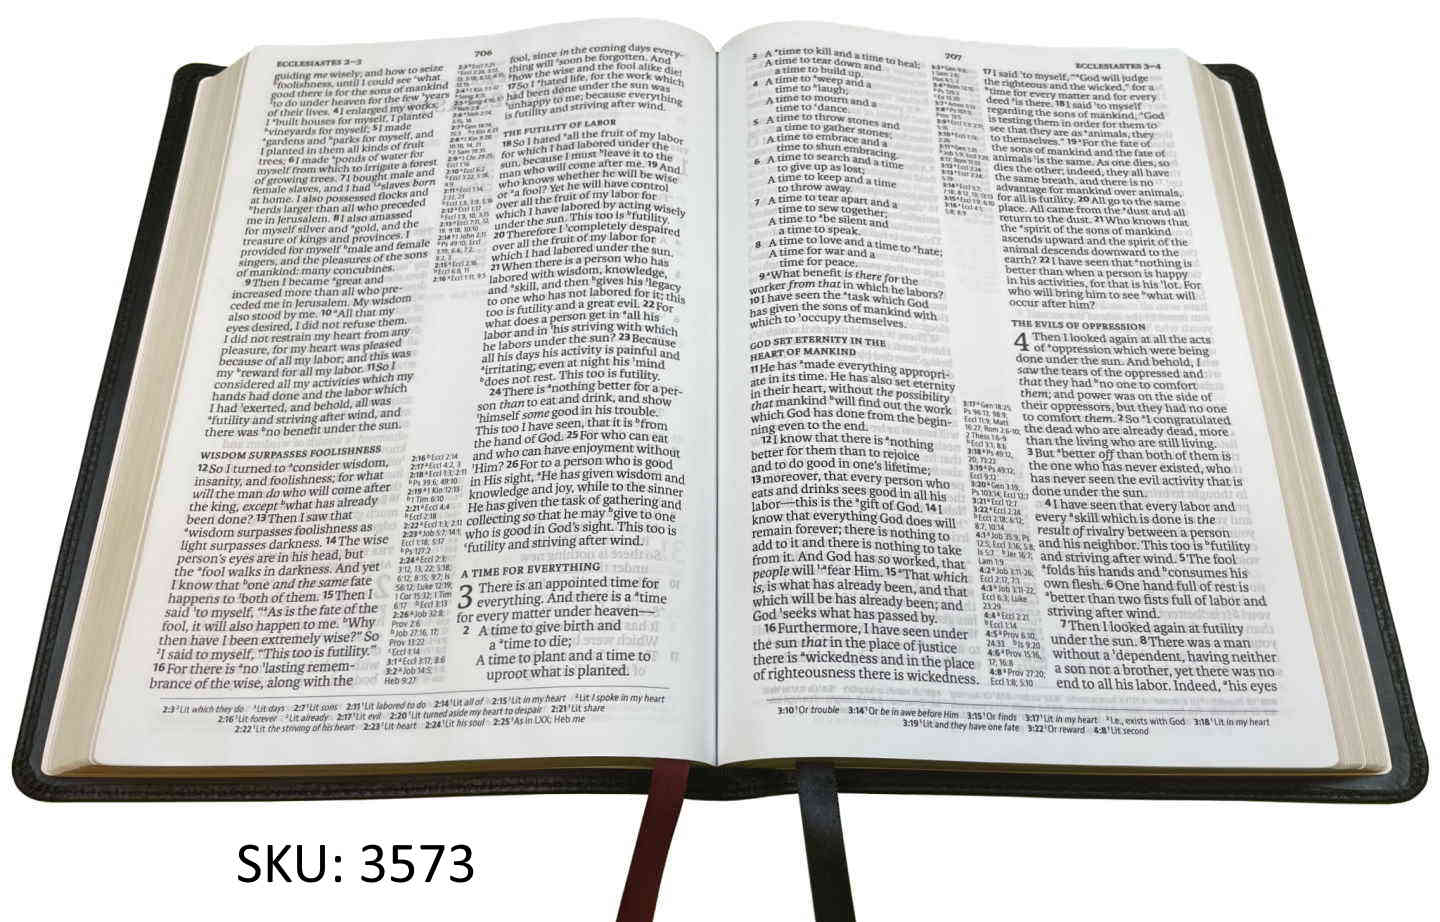 706
ECCLESIASTES 2–3
guiding me wisely; and how to seize
ᵇfoolishness, until I could see ᶜwhat
good there is for the sons of mankind
²to do under heaven for the few ³years
of their lives. 4 I enlarged my works:
I ᵃbuilt houses for myself, I planted
ᵇvineyards for myself; 5 I made
ᵃgardens and ᵇparks for myself, and
I planted in them all kinds of fruit
trees; 6 I made ᵃponds of water for
myself from which to irrigate a forest
of growing trees. 7 I bought male and
female slaves, and I had ¹ᵃslaves born
at home. I also possessed flocks and
ᵇherds larger than all who preceded
me in Jerusalem. 8 I also amassed
for myself silver and ᵃgold, and the
treasure of kings and provinces. I
provided for myself ᵇmale and female
singers, and the pleasures of the sons
of mankind: many concubines.
9 Then I became ᵃgreat and
increased more than all who pre-
ceded me in Jerusalem. My wisdom
also stood by me. 10 ᵃAll that my
eyes desired, I did not refuse them.
I did not restrain my heart from any
pleasure, for my heart was pleased
because of all my labor; and this was
my ᵇreward for all my labor. 11 So I
considered all my activities which my
hands had done and the labor which
I had ¹exerted, and behold, all was
ᵃfutility and striving after wind, and
there was ᵇno benefit under the sun.
WISDOM SURPASSES FOOLISHNESS
12 So I turned to ᵃconsider wisdom,
insanity, and foolishness; for what
will the man do who will come after
the king, except ᵇwhat has already
been done? 13 Then I saw that
ᵃwisdom surpasses foolishness as
light surpasses darkness. 14 The wise
person's eyes are in his head, but
the ᵃfool walks in darkness. And yet
I know that ᵇone and the same fate
happens to ¹both of them. 15 Then I
said ¹to myself, “ᵃAs is the fate of the
fool, it will also happen to me. ᵇWhy
then have I been extremely wise?” So
²I said to myself, “This too is futility.”
16 For there is ᵃno ¹lasting remem-
brance of the wise, along with the
fool, since in the coming days every-
thing will ᵇsoon be forgotten. And
ᶜhow the wise and the fool alike die!
17 So I ᵃhated life, for the work which
had been done under the sun was
¹unhappy to me; because everything
is futility and striving after wind.
THE FUTILITY OF LABOR
18 So I hated ᵃall the fruit of my labor
for which I had labored under the
sun, because I must ᵇleave it to the
man who will come after me. 19 And
who knows whether he will be wise
or ᵃa fool? Yet he will have control
over all the fruit of my labor for
which I have labored by acting wisely
under the sun. This too is ᵇfutility.
20 Therefore I ¹completely despaired
over all the fruit of my labor for
which I had labored under the sun.
21 When there is a person who has
labored with wisdom, knowledge,
and ᵃskill, and then ᵇgives his ¹legacy
to one who has not labored for it; this
too is futility and a great evil. 22 For
what does a person get in ᵃall his
labor and in ¹his striving with which
he labors under the sun? 23 Because
all his days his activity is painful and
ᵃirritating; even at night his ¹mind
ᵇdoes not rest. This too is futility.
24 There is ᵃnothing better for a per-
son than to eat and drink, and show
¹himself some good in his trouble.
This too I have seen, that it is ᵇfrom
the hand of God. 25 For who can eat
and who can have enjoyment without
¹Him? 26 For to a person who is good
in His sight, ᵃHe has given wisdom and
knowledge and joy, while to the sinner
He has given the task of gathering and
collecting so that he may ᵇgive to one
who is good in God's sight. This too is
ᶜfutility and striving after wind.
A TIME FOR EVERYTHING
3 There is an appointed time for
everything. And there is a ᵃtime
for every matter under heaven—
2 A time to give birth and
a ᵃtime to die;
A time to plant and a time to
uproot what is planted.
2:3 ²Lit which they do ³Lit days 2:7 ¹Lit sons 2:11 ¹Lit labored to do 2:14 ¹Lit all of 2:15 ¹Lit in my heart ²Lit I spoke in my heart
2:16 ¹Lit forever ²Lit already 2:17 ¹Lit evil 2:20 ¹Lit turned aside my heart to despair 2:21 ¹Lit share
2:22 ¹Lit the striving of his heart 2:23 ¹Lit heart 2:24 ¹Lit his soul 2:25 ¹As in LXX; Heb me
707
ECCLESIASTES 3–4
3 A ᵃtime to kill and a time to heal;
A time to tear down and
a time to build up.
4 A time to ᵃweep and a
time to ᵇlaugh;
A time to mourn and a
time to ᶜdance.
5 A time to throw stones and
a time to gather stones;
A time to embrace and a
time to shun embracing.
6 A time to search and a time
to give up as lost;
A time to keep and a time
to throw away.
7 A time to tear apart and a
time to sew together;
A time to ᵃbe silent and
a time to speak.
8 A time to love and a time to ᵃhate;
A time for war and a
time for peace.
9 ᵃWhat benefit is there for the
worker from that in which he labors?
10 I have seen the ᵃtask which God
has given the sons of mankind with
which to ¹occupy themselves.
GOD SET ETERNITY IN THE
HEART OF MANKIND
11 He has ᵃmade everything appropri-
ate in its time. He has also set eternity
in their heart, without the possibility
that mankind ᵇwill find out the work
which God has done from the begin-
ning even to the end.
12 I know that there is ᵃnothing
better for them than to rejoice
and to do good in one's lifetime;
13 moreover, that every person who
eats and drinks sees good in all his
labor—this is the ᵃgift of God. 14 I
know that everything God does will
remain forever; there is nothing to
add to it and there is nothing to take
from it. And God has so worked, that
people will ¹ᵃfear Him. 15 ᵃThat which
is, is what has already been, and that
which will be has already been; and
God ¹seeks what has passed by.
16 Furthermore, I have seen under
the sun that in the place of justice
there is ᵃwickedness and in the place
of righteousness there is wickedness.
17 I said ¹to myself, “ᵃGod will judge
the righteous and the wicked,” for a
ᵇtime for every matter and for every
deed ²is there. 18 I said ¹to myself
regarding the sons of mankind, “God
is testing them in order for them to
see that they are as ᵃanimals, they
to themselves.” 19 ᵃFor the fate of
the sons of mankind and the fate of
animals ¹is the same. As one dies, so
dies the other; indeed, they all have
the same breath, and there is no
advantage for mankind over animals,
for all is futility. 20 All go to the same
place. All came from the ᵃdust and all
return to the dust. 21 Who knows that
the ᵃspirit of the sons of mankind
ascends upward and the spirit of the
animal descends downward to the
earth? 22 I have seen that ᵃnothing is
better than when a person is happy
in his activities, for that is his ¹lot. For
who will bring him to see ᵇwhat will
occur after him?
THE EVILS OF OPPRESSION
4 Then I looked again at all the acts
of ᵃoppression which were being
done under the sun. And behold, I
saw the tears of the oppressed and
that they had ᵇno one to comfort
them; and power was on the side of
their oppressors, but they had no one
to comfort them. 2 So ᵃI congratulated
the dead who are already dead, more
than the living who are still living.
3 But ᵃbetter off than both of them is
the one who has never existed, who
has never seen the evil activity that is
done under the sun.
4 I have seen that every labor and
every ᵃskill which is done is the
result of rivalry between a person
and his neighbor. This too is ᵇfutility
and striving after wind. 5 The fool
ᵃfolds his hands and ᵇconsumes his
own flesh. 6 One hand full of rest is
ᵃbetter than two fists full of labor and
striving after wind.
7 Then I looked again at futility
under the sun. 8 There was a man
without a ¹dependent, having neither
a son nor a brother, yet there was no
end to all his labor. Indeed, ᵃhis eyes
3:10 ¹Or trouble 3:14 ¹Or be in awe before Him 3:15 ¹Or finds 3:17 ¹Lit in my heart ²I.e., exists with God 3:18 ¹Lit in my heart
3:19 ¹Lit and they have one fate 3:22 ¹Or reward 4:8 ¹Lit second
SKU: 3573